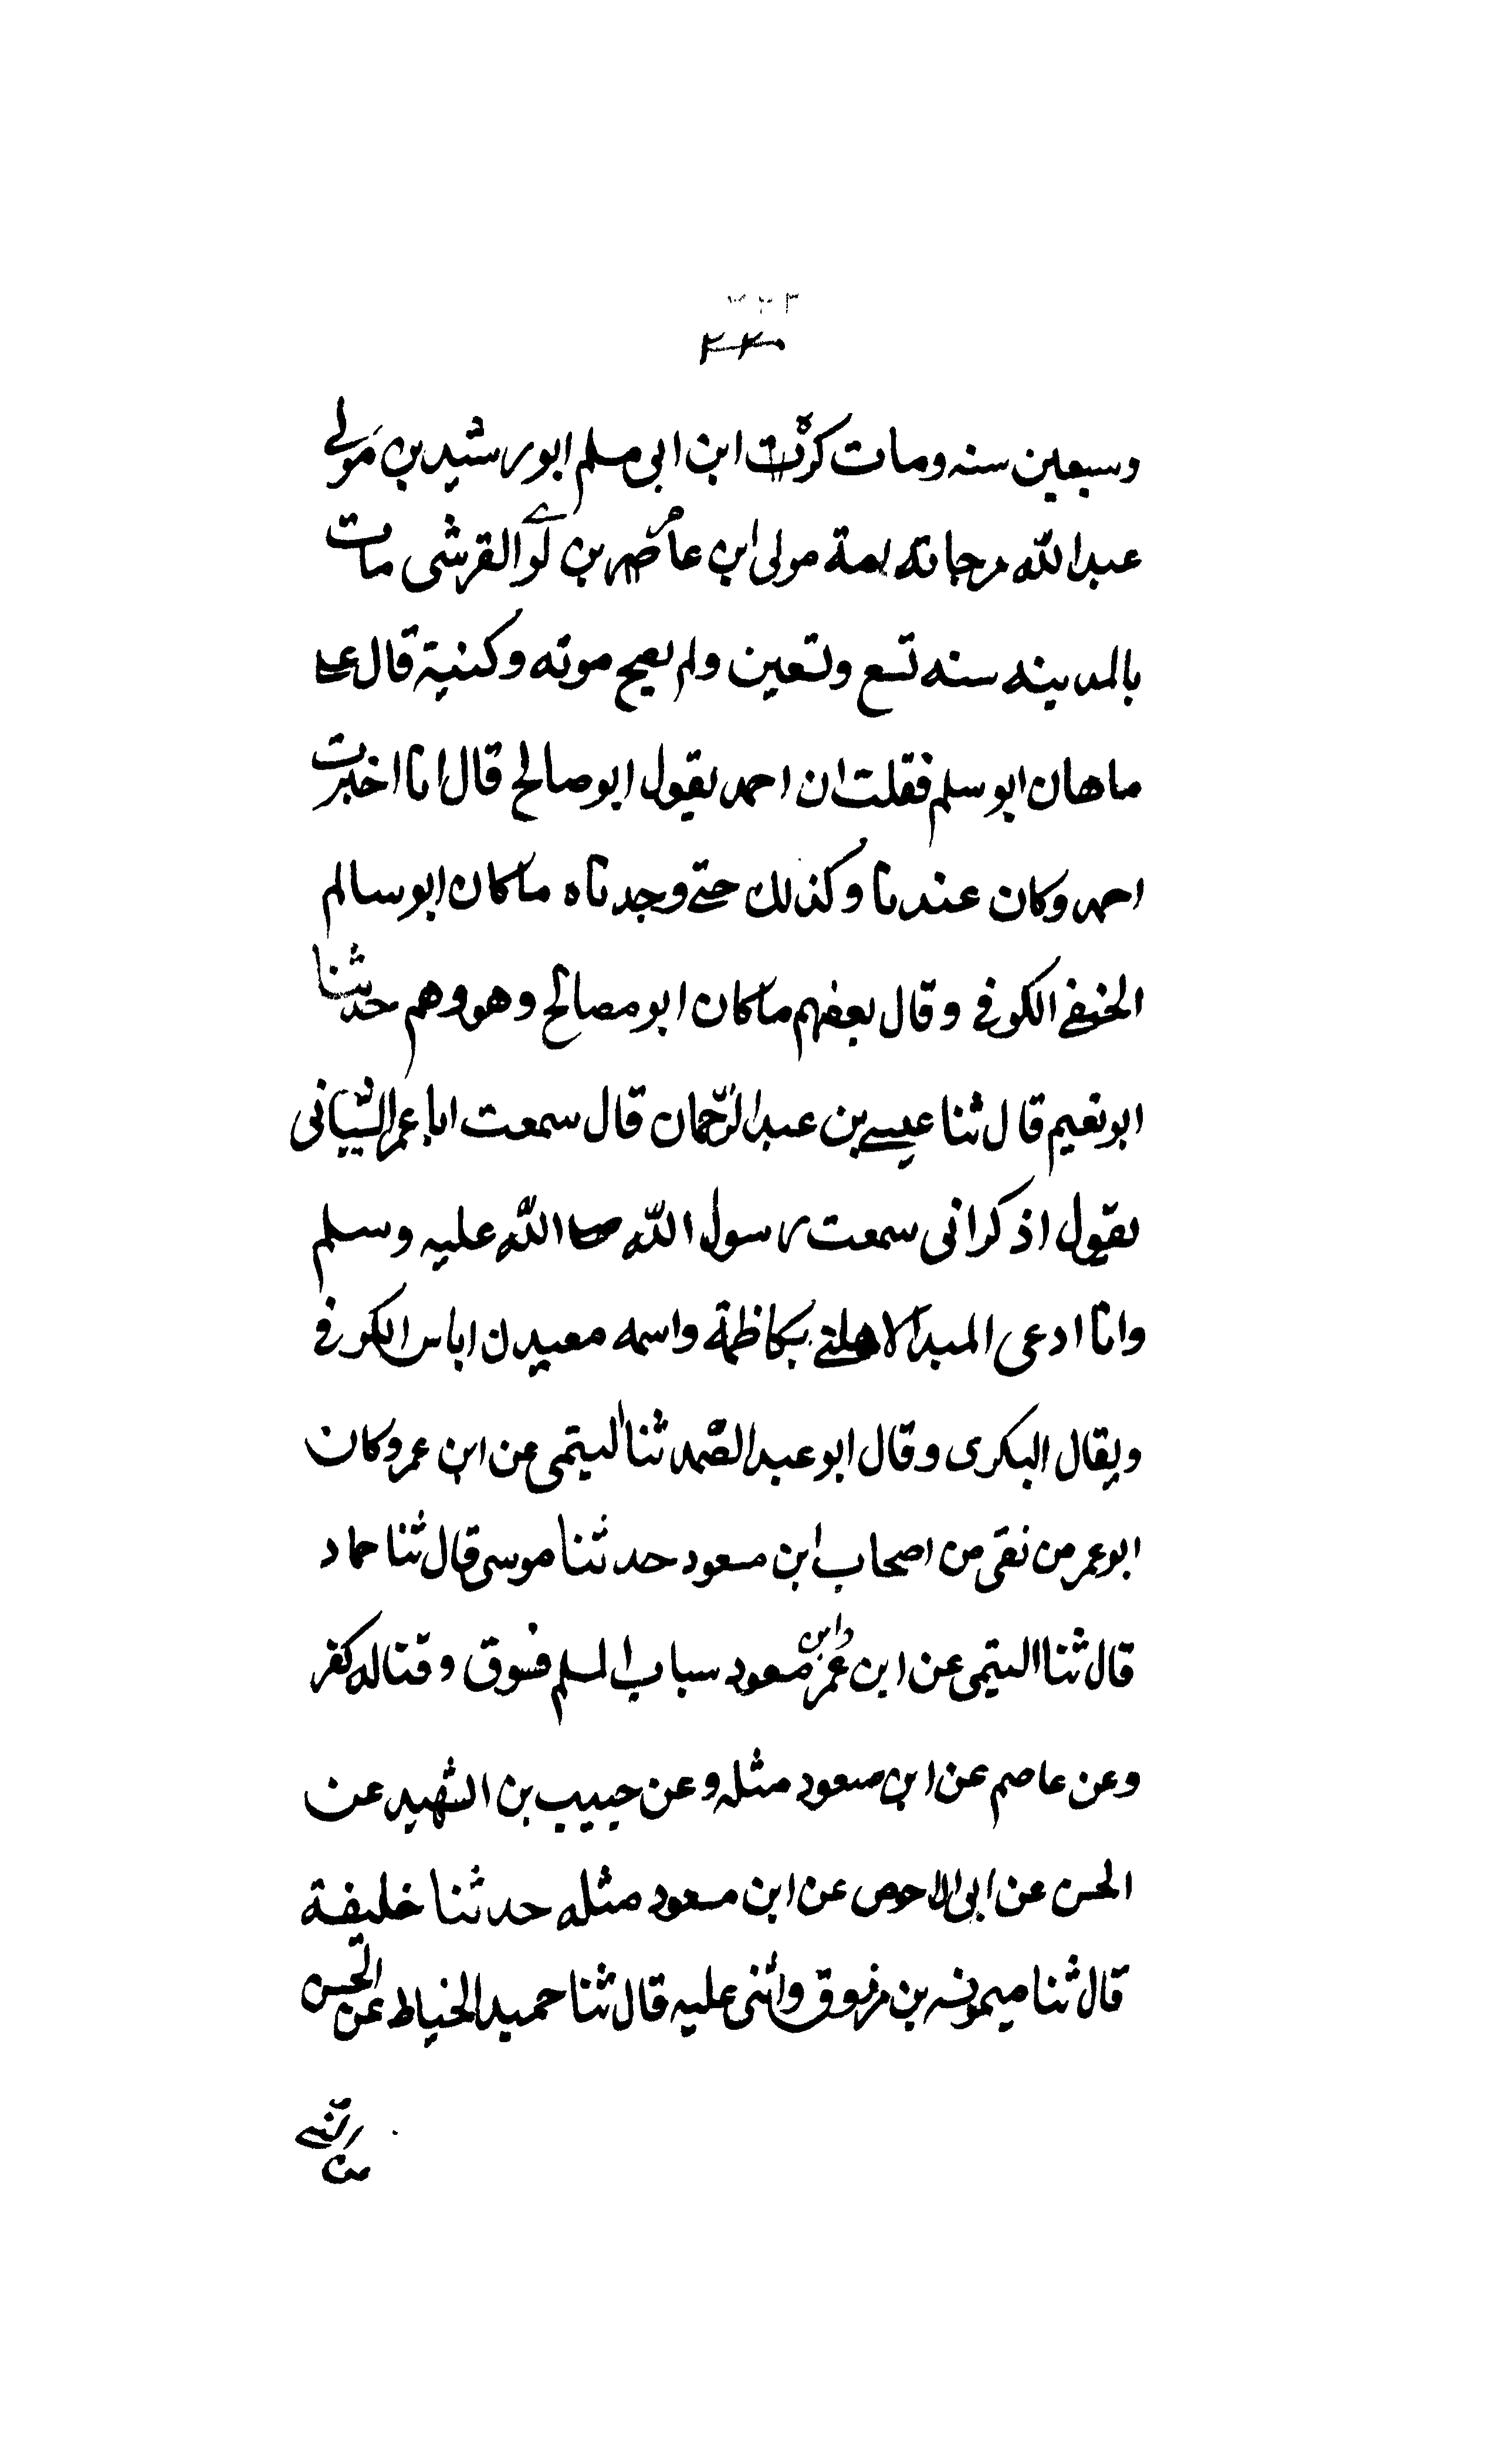 ٢٢٠
وسبعين سنه ومات كريب ابن ابى مسلم ابو رشيد بن مولى
عبد الله مرجانة امة مولى ابن عامر بن لوى القرشى مات
بالمدينه سنه تسع وتسعين ولم يصح موته وكنية قال على
ماهان ابو سلم فقلت ان احمد يقول ابو صالح قال انا اخبرت
احمد وكان عندنا وكذلك حتى وجدناه ماكان ابو سالم
الحنفى الكوفى وقال بعضهم ماكان ابو صالح وهو وهم حدثنا
ابو نعيم قال ثنا عيسى بن عبد الرحمان قال سمعت ابا عمر الشيبانى
يقول اذكر انى سمعت رسول الله صلى الله عليه وسلم
وانا ادعى الابل لاهلى بكاظمة واسمه معيد بن اياس الكوفى
ويقال البكرى وقال ابو عبد الصمد ثنا التيمى عن ابن عمر وكان
ابو عمر من نقى من اصحاب ابن مسعود حدثنا موسى قال ثنا حماد
قال ثنا التيمى عن ابن عمر وابن مسعود سباب المسلم فسوق وقتاله كفر
وعن عاصم عن ابن مسعود مثله وعن حبيب بن الشهيد عن
الحسن عن ابى الاحوص عن ابن مسعود مثله حدثنا خليفة
قال ثنا ميمونه بن مرزوق واثنى عليه قال ثنا حميد الخياط عن الحسن